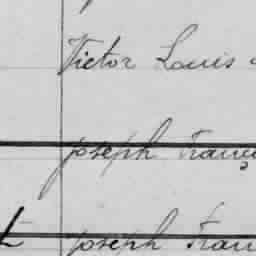 Victor Louis
Joseph Franç
Joseph Fran